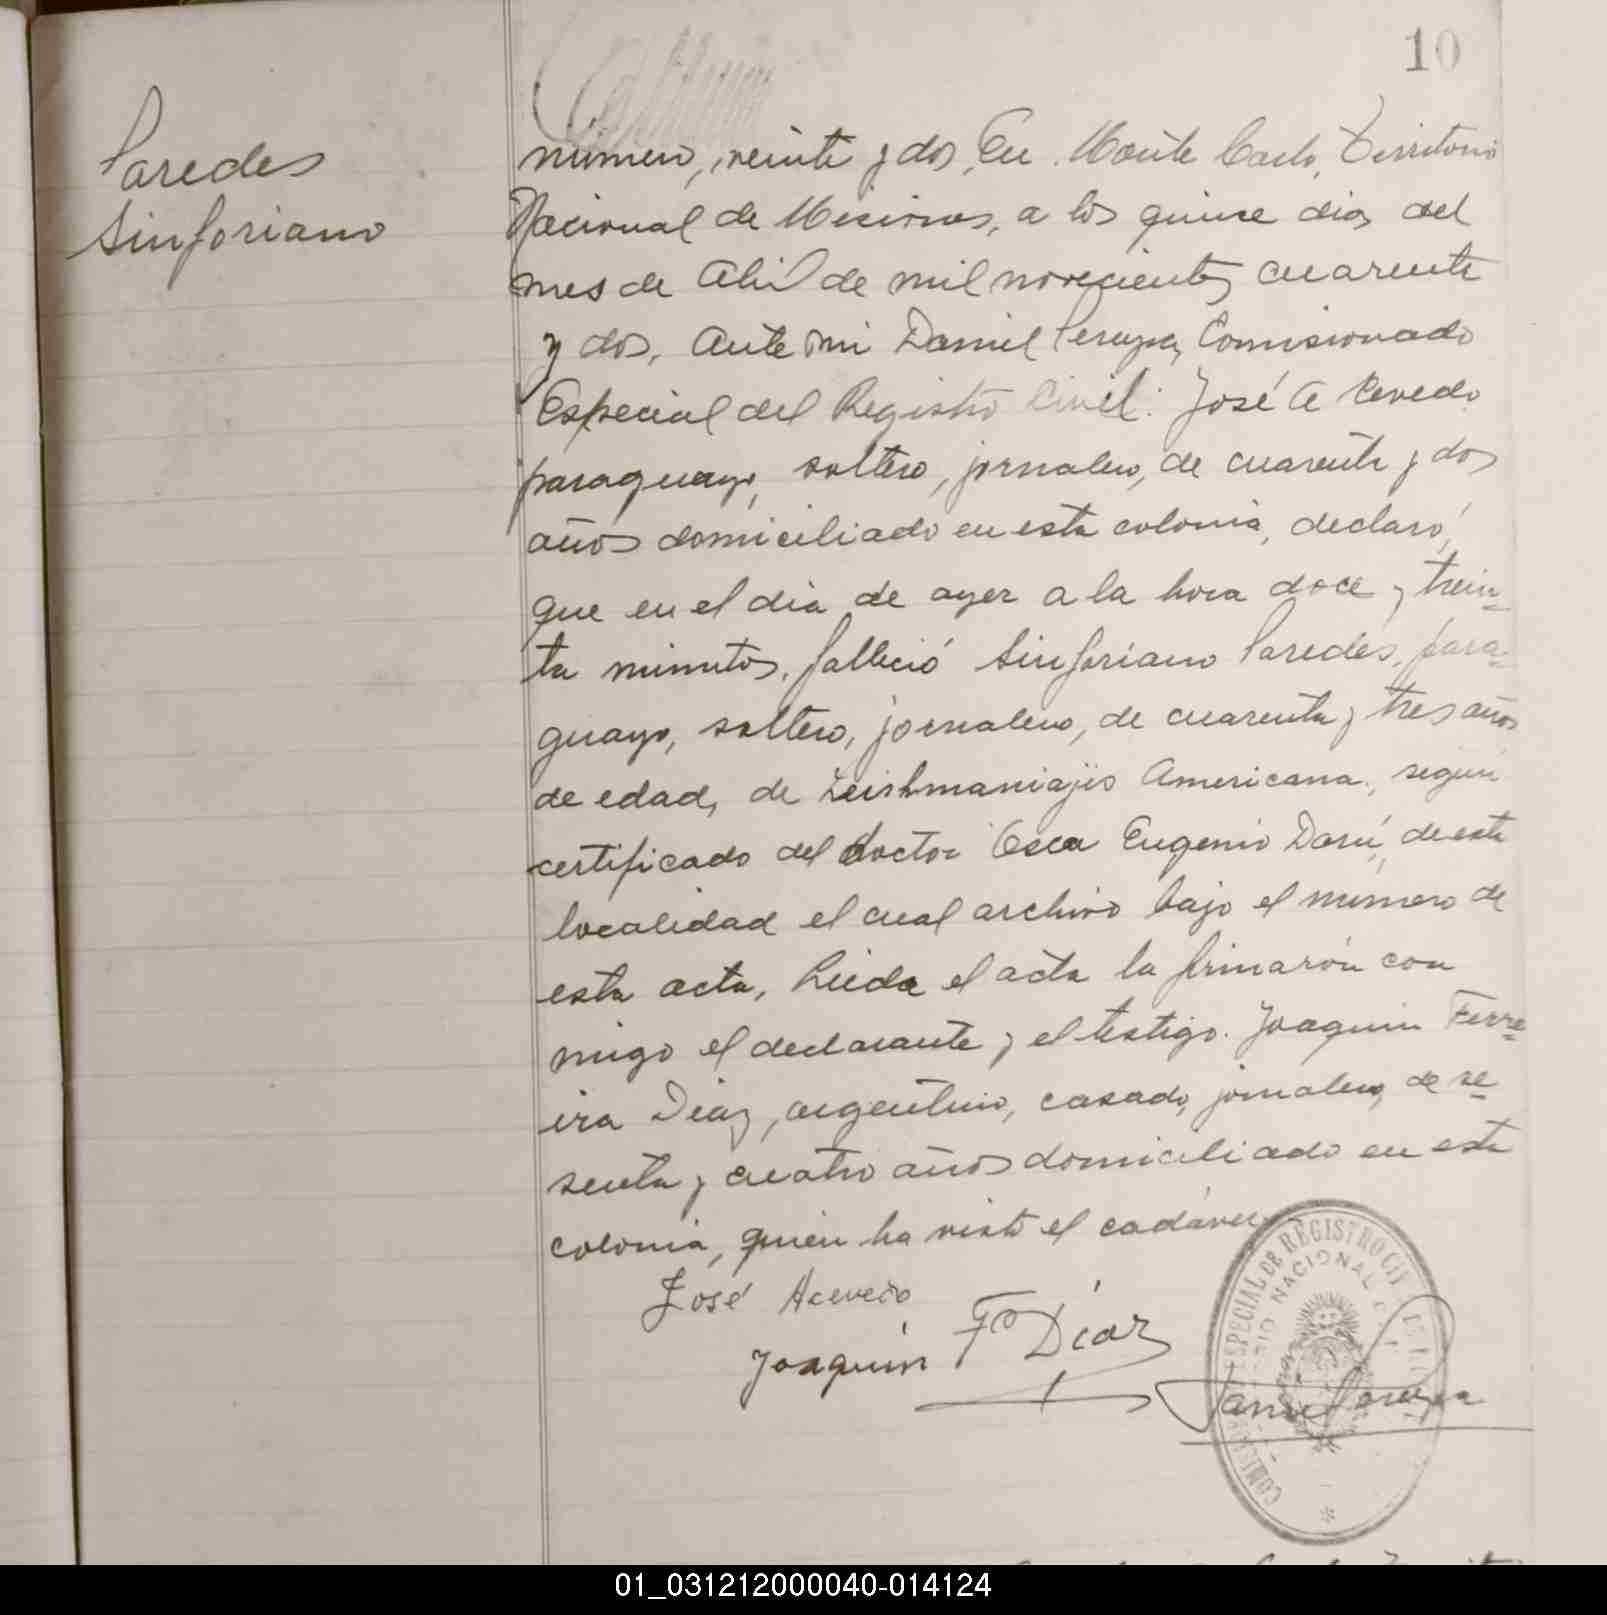 10
Paredes
Sinforiano
número, veinte y dos, En Monte Carlo, Territorio
Nacional de Misiones, a los quince dias del
mes de Abril de mil novecientos cuarenta
y dos, Ante mi Daniel Pereyra, Comisionado
Especial del Registro Civil: José Acevedo
paraguayo, soltero, jornalero, de cuarenta y dos
años domiciliado en esta colonia, declaró,
que en el dia de ayer a la hora doce y trein-
ta minutos, falleció Sinforiano Paredes, para-
guayo, soltero, jornalero, de cuarenta y tres años
de edad, de Leishmaniajis Americana, según
certificado del doctor Oscar Eugenio Darú, de esta
localidad el cual archivo bajo el número de
esta acta, Leida el acta la firmarón con
migo el declarante y el testigo. Joaquin Ferre-
ira Diaz, argentino, casado, jornalero, de se-
senta y cuatro años domiciliado en esta
colonia, quien ha visto el cadáver
José Acevedo
Joaquin Fa Diaz
Daniel Pereyra
ESPECIAL DE REGISTRO CIVIL
NACIONAL
01_031212000040-014124